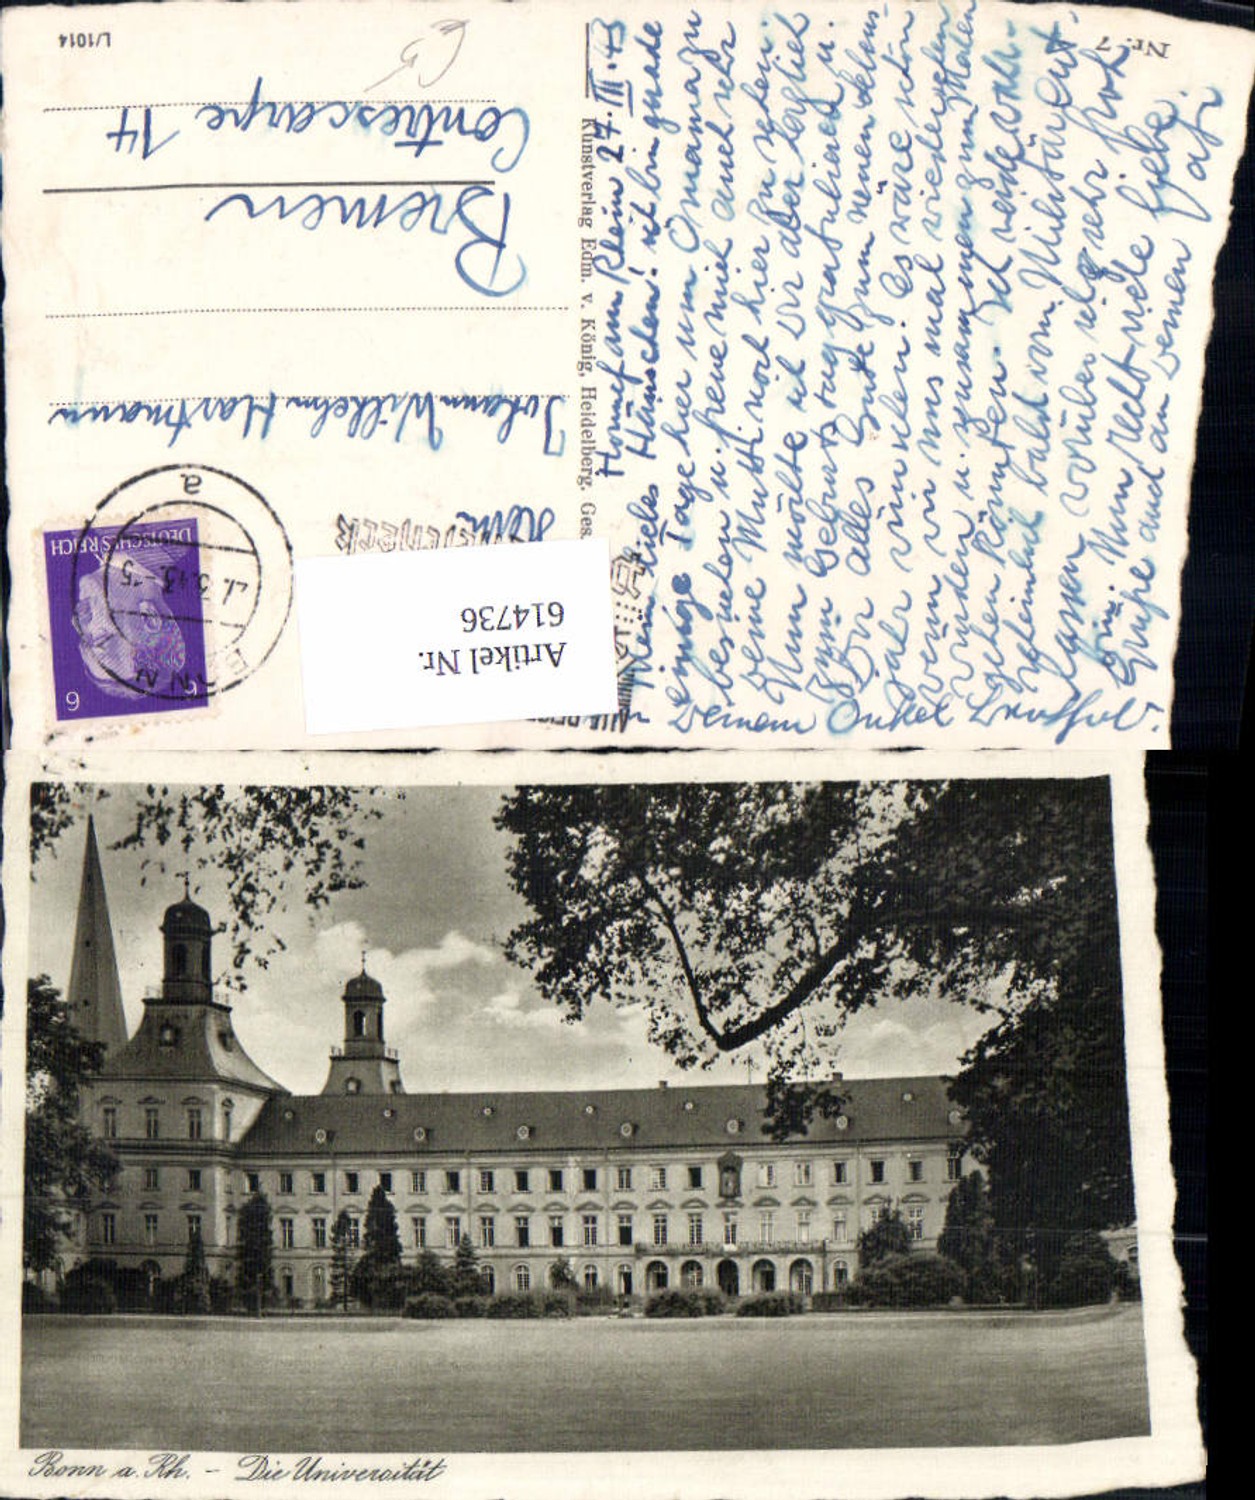 Nr. 7
L/1014
Kunstverlag Edm. v. König, Heidelberg. Ges.
DEUTSCHES REICH
6
6
BONN
a
Artikel Nr.
614736
Herrn
Johann Wilhelm Hartmann
Bremen
Contrescarpe 14
Honnef am Rhein 27. III. 43
Mein liebes Hänschen! ich bin gerade
einige Tage hier um Omama zu
besuchen u. freue mich auch sehr
Deine Mutti noch hier zu sehen.
Nun möchte ich Dir aber herzlich
zum Geburtstag gratulieren u.
Dir alles Gute zum neuen Lebens-
jahr wünschen. Es wäre schön
wenn wir uns mal wiedersehen
würden u. zusammen zum Malen
gehen könnten. Ich werde wahr-
scheinlich bald vom Militär ent-
lassen, worüber ich sehr froh
bin. Nun recht viele liebe
Grüße auch an Deinen Papi
Deinem Onkel
Bonn a. Rh. - Die Universität